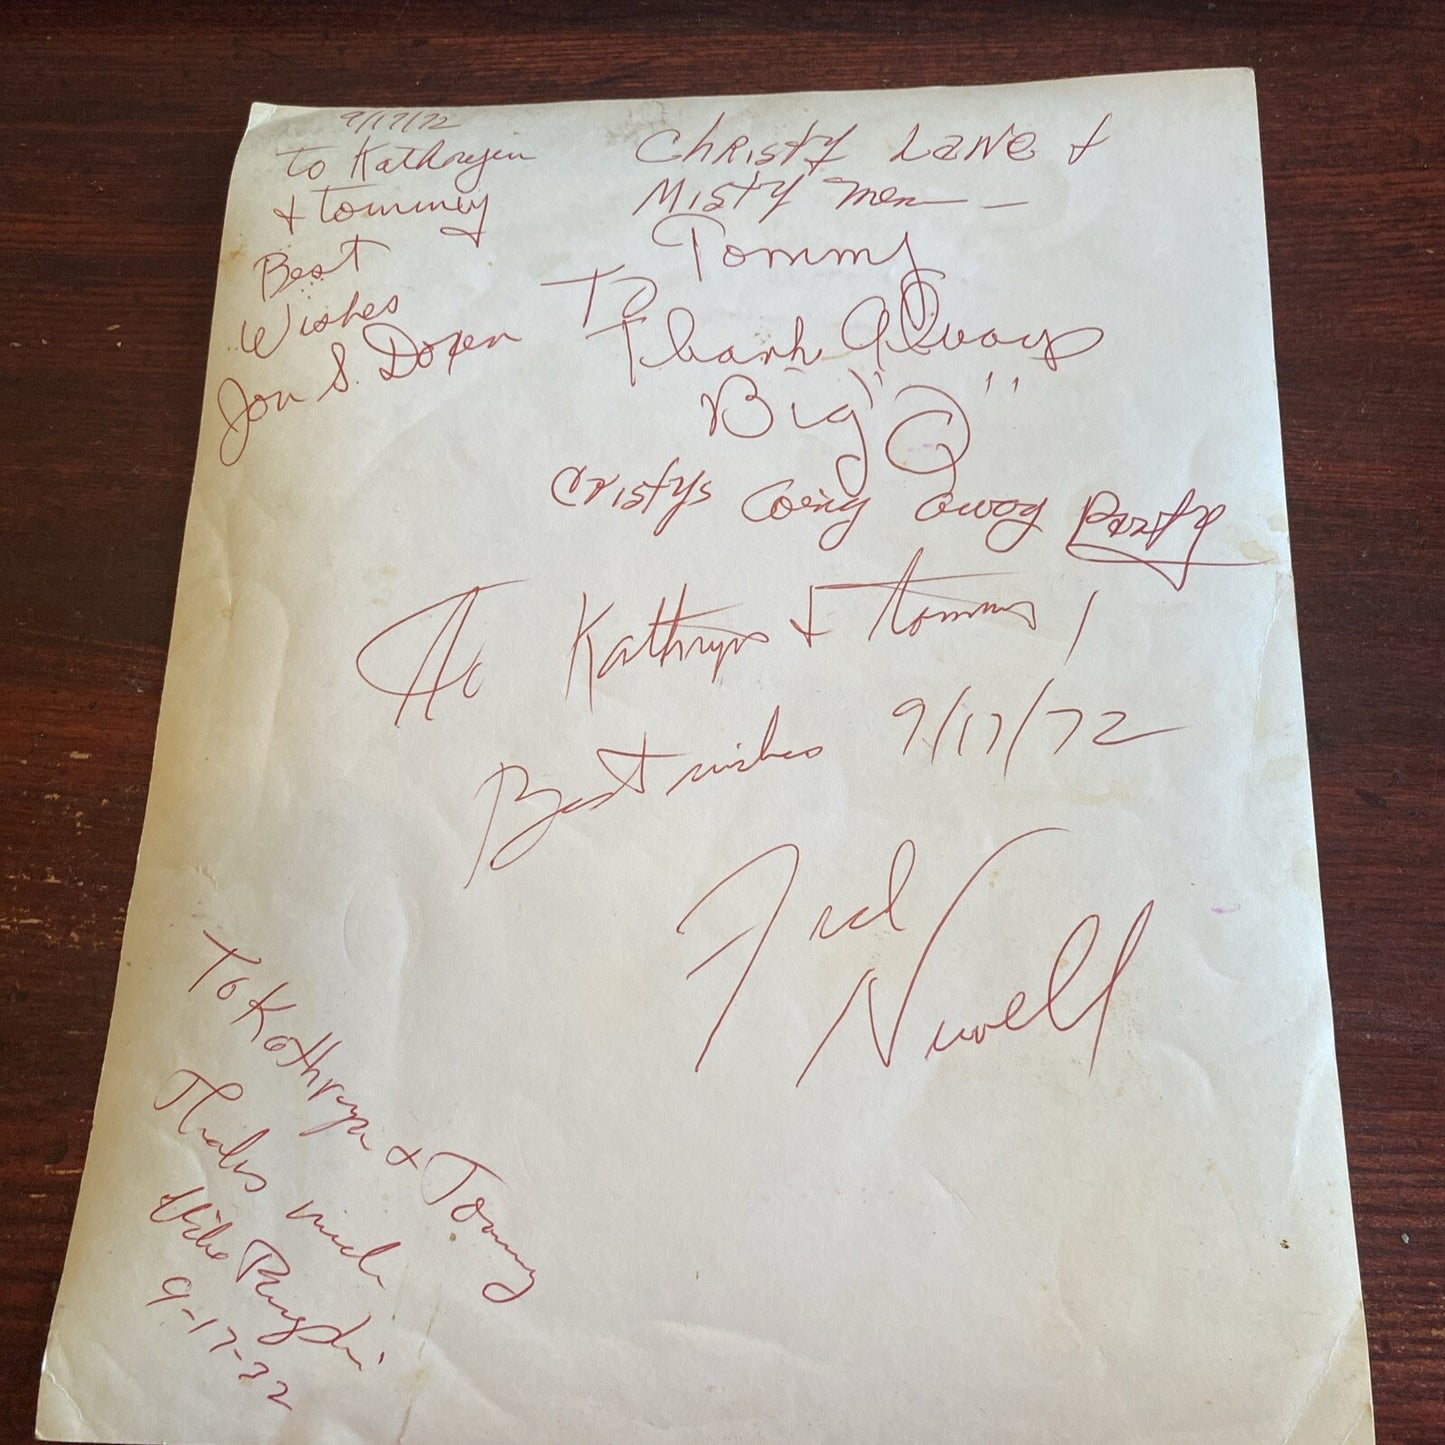 9/17/72
To Kathrejin
+ Tommy
Best
Wishes
Jon S. Doxen
Christy Lane +
Misty men —
To Tommy
Thank Always
Big "Q"
Cristys Going away Party
To Kathryn + Tommy,
Best wishes 9/17/72
Fred
Newell
To Kathryn + Tommy
Thanks much
Mike
9-17-72